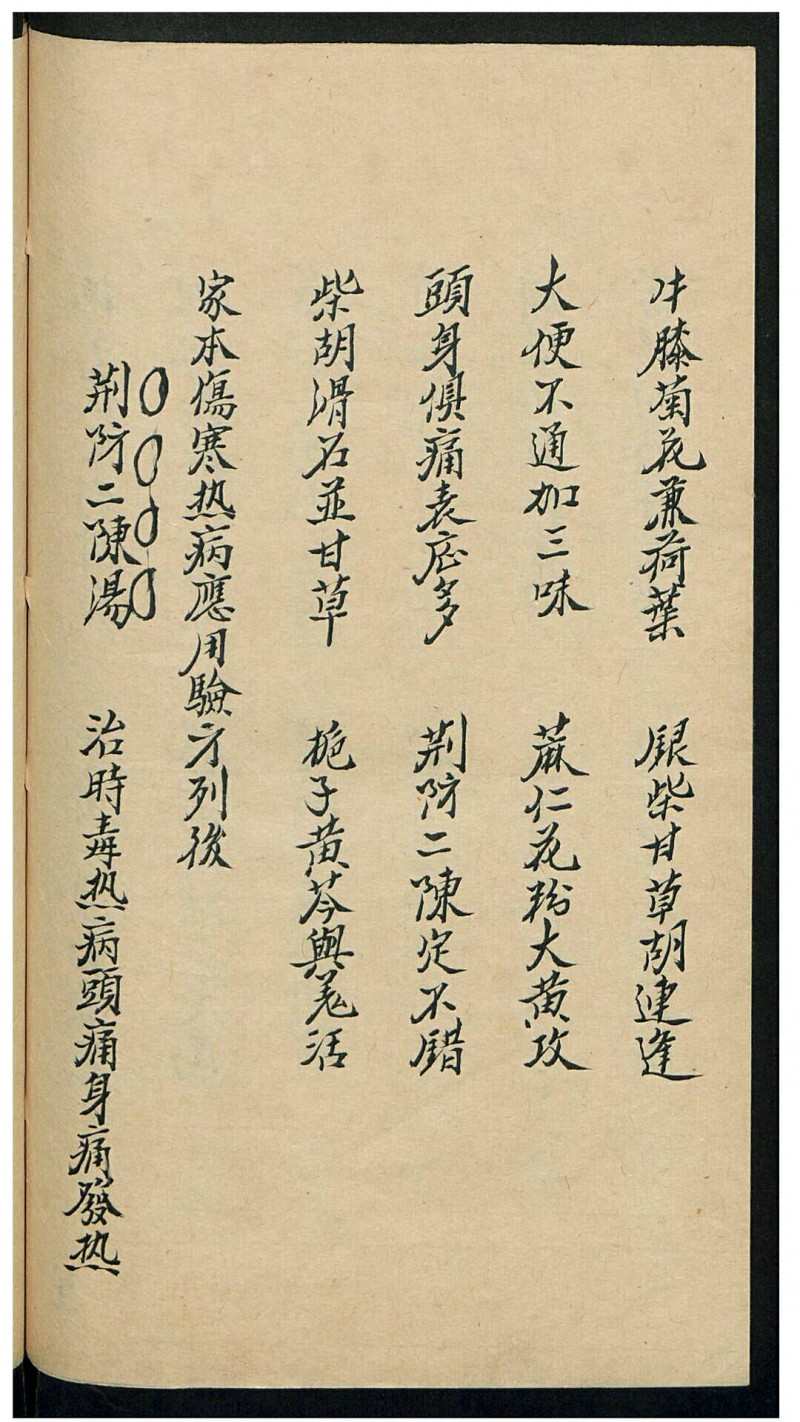 牛膝菊花兼荷葉 銀柴甘草胡連逢
大便不通加三味 蔴仁花粉大黄攻
頭身俱痛表症多 荆防二陳定不錯
柴胡滑石並甘草 梔子黄芩與羌活
家本傷寒热病應用驗方列後
荆防二陳湯 治時毒热病頭痛身痛發热